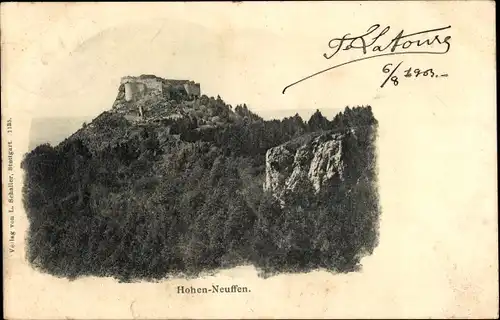 F. Latour
6/8 1903.-
Verlag von L. Schaller, Stuttgart. 1135.
Hohen-Neuffen.